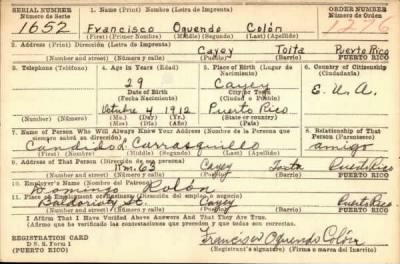 SERIAL NUMBER 1. Name (Print) Nombre (Letra de Imprenta) ORDER NUMBER
Número de Serie Número de Orden
1652 Francisco Oquendo Colón
(First) (Primer Nombre) (Middle) (Segundo Nombre) (Last) (Apellido)
2. Address (Print) Dirección (Letra de Imprenta)
Cayey Toita Puerto Rico
(Number and street) (Número y calle) (Barrio) PUERTO RICO
3. Telephone (Teléfono) 4. Age in Years (Edad) 5. Place of Birth (Lugar de Nacimiento) 6. Country of Citizenship (Ciudadanía)
29 Cayey
Date of Birth (Fecha Nacimiento) E. U. A.
Octubre 4, 1912 Puerto Rico
(Mo.) (Day) (Yr.) (State or country)
7. Name of Person Who Will Always Know Your Address (Nombre de la Persona que siempre sabrá su dirección) 8. Relationship of That Person (Parentesco)
Candido L. Carrasquillo amigo
9. Address of That Person (Dirección de esa persona)
Km. 63 Cayey Toita Puerto Rico
(Number and street) (Número y calle) (Barrio) PUERTO RICO
10. Employer's Name (Nombre del Patrono)
Domingo Colón
11. Place of Employment or Business (Dirección del empleo o negocio)
Cayey Puerto Rico
(Number and street) (Número y calle) (Barrio) PUERTO RICO
I Affirm That I Have Verified Above Answers And That They Are True.
Afirmo que he verificado las contestaciones que preceden y que todas son correctas.
REGISTRATION CARD
D. S. S. Form 1
(PUERTO RICO)
Francisco Oquendo Colón
(Registrant's signature) (Firma o marca del Inscrito)